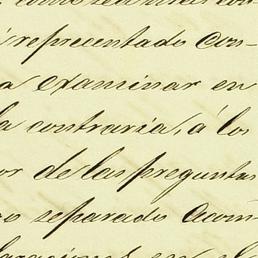 representado con-
a examinar en
la contraria, á los
or de las preguntas
separado acom